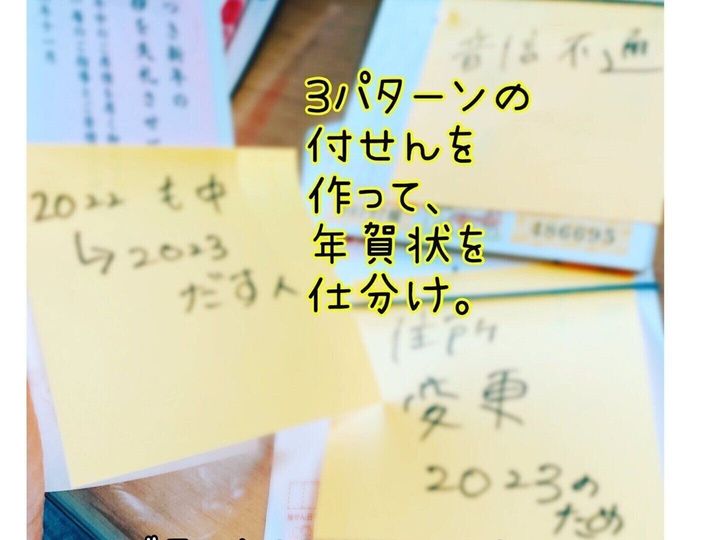 つき新年の
音信不通
3パターンの
付せんを
作って、
年賀状を
仕分け。
2022 も中
↳2023
だす人
486695
住所
変更
2023の
ため